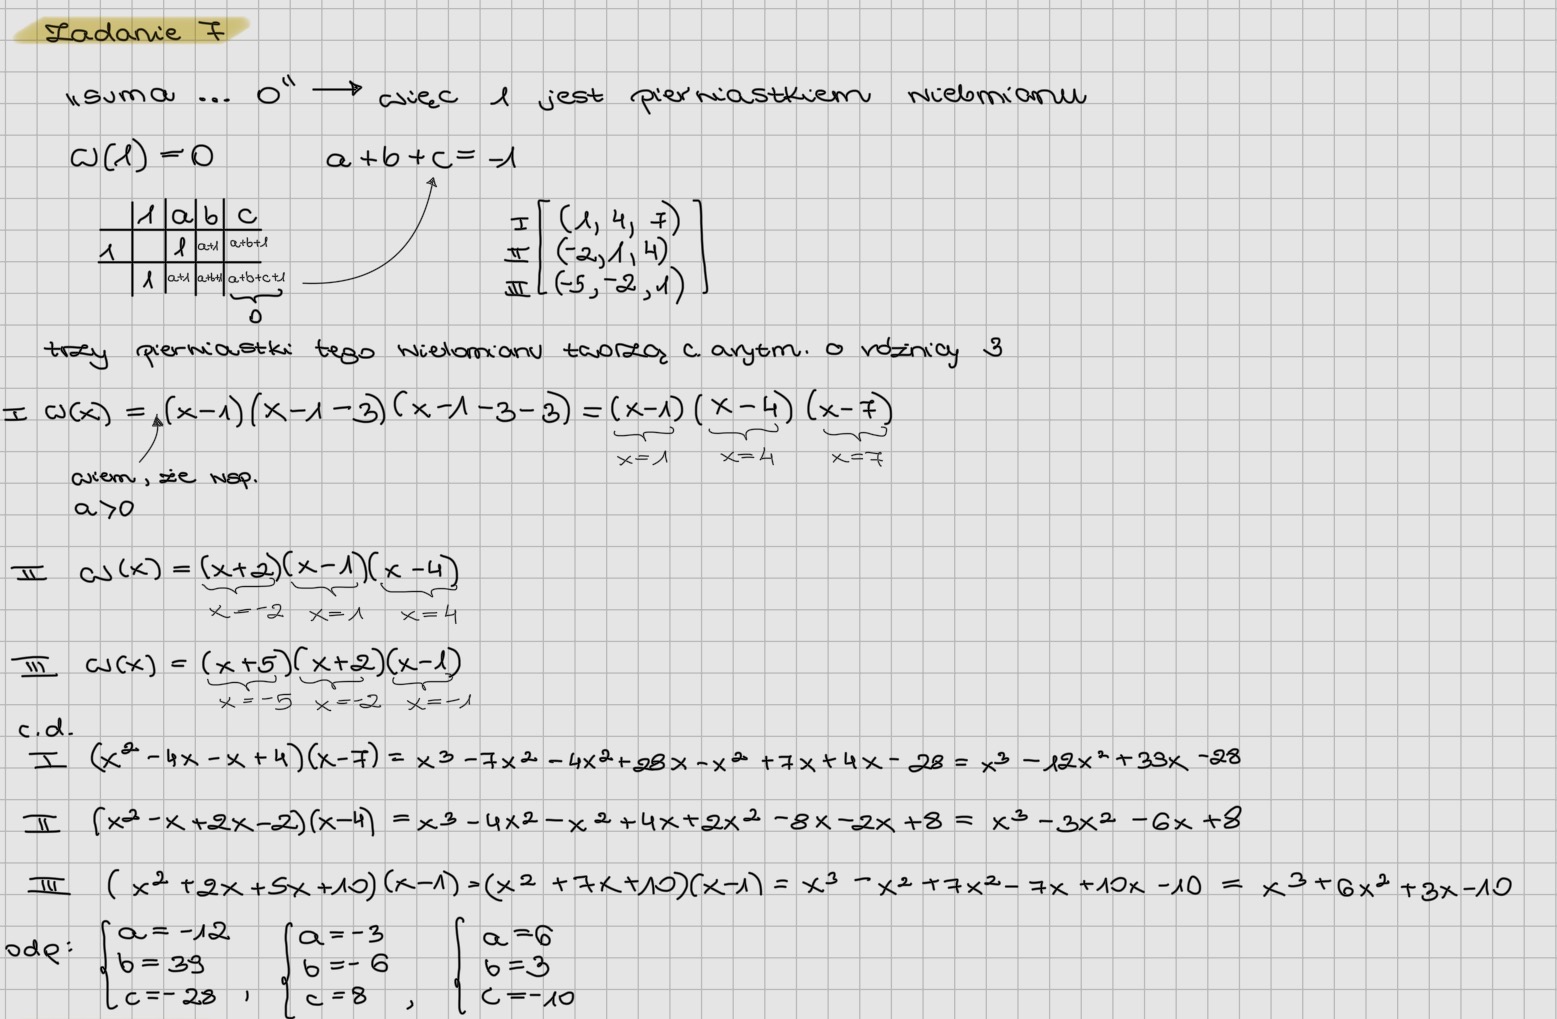 Zadanie 7
„suma ... 0" → więc 1 jest pierwiastkiem wielomianu
W(1) = 0 a+b+c = -1
1 a b c
1 1 a+1 a+b+1
1 a+1 a+b+1 a+b+c+1
0
I (1, 4, 7)
II (-2, 1, 4)
III (-5, -2, 1)
trzy pierwiastki tego wielomianu tworzą c. arytm. o różnicy 3
I W(x) = (x-1)(x-1-3)(x-1-3-3) = (x-1)(x-4)(x-7)
x=1 x=4 x=7
wiem, że wsp.
a>0
II W(x) = (x+2)(x-1)(x-4)
x=-2 x=1 x=4
III W(x) = (x+5)(x+2)(x-1)
x=-5 x=-2 x=-1
c.d.
I (x² - 4x - x + 4)(x-7) = x³ - 7x² - 4x² + 28x - x² + 7x + 4x - 28 = x³ - 12x² + 39x - 28
II (x² - x + 2x - 2)(x-4) = x³ - 4x² - x² + 4x + 2x² - 8x - 2x + 8 = x³ - 3x² - 6x + 8
III (x² + 2x + 5x + 10)(x-1) = (x² + 7x + 10)(x-1) = x³ - x² + 7x² - 7x + 10x - 10 = x³ + 6x² + 3x - 10
odp: a = -12 a = -3 a = 6
b = 39 b = -6 b = 3
c = -28 , c = 8 , c = -10